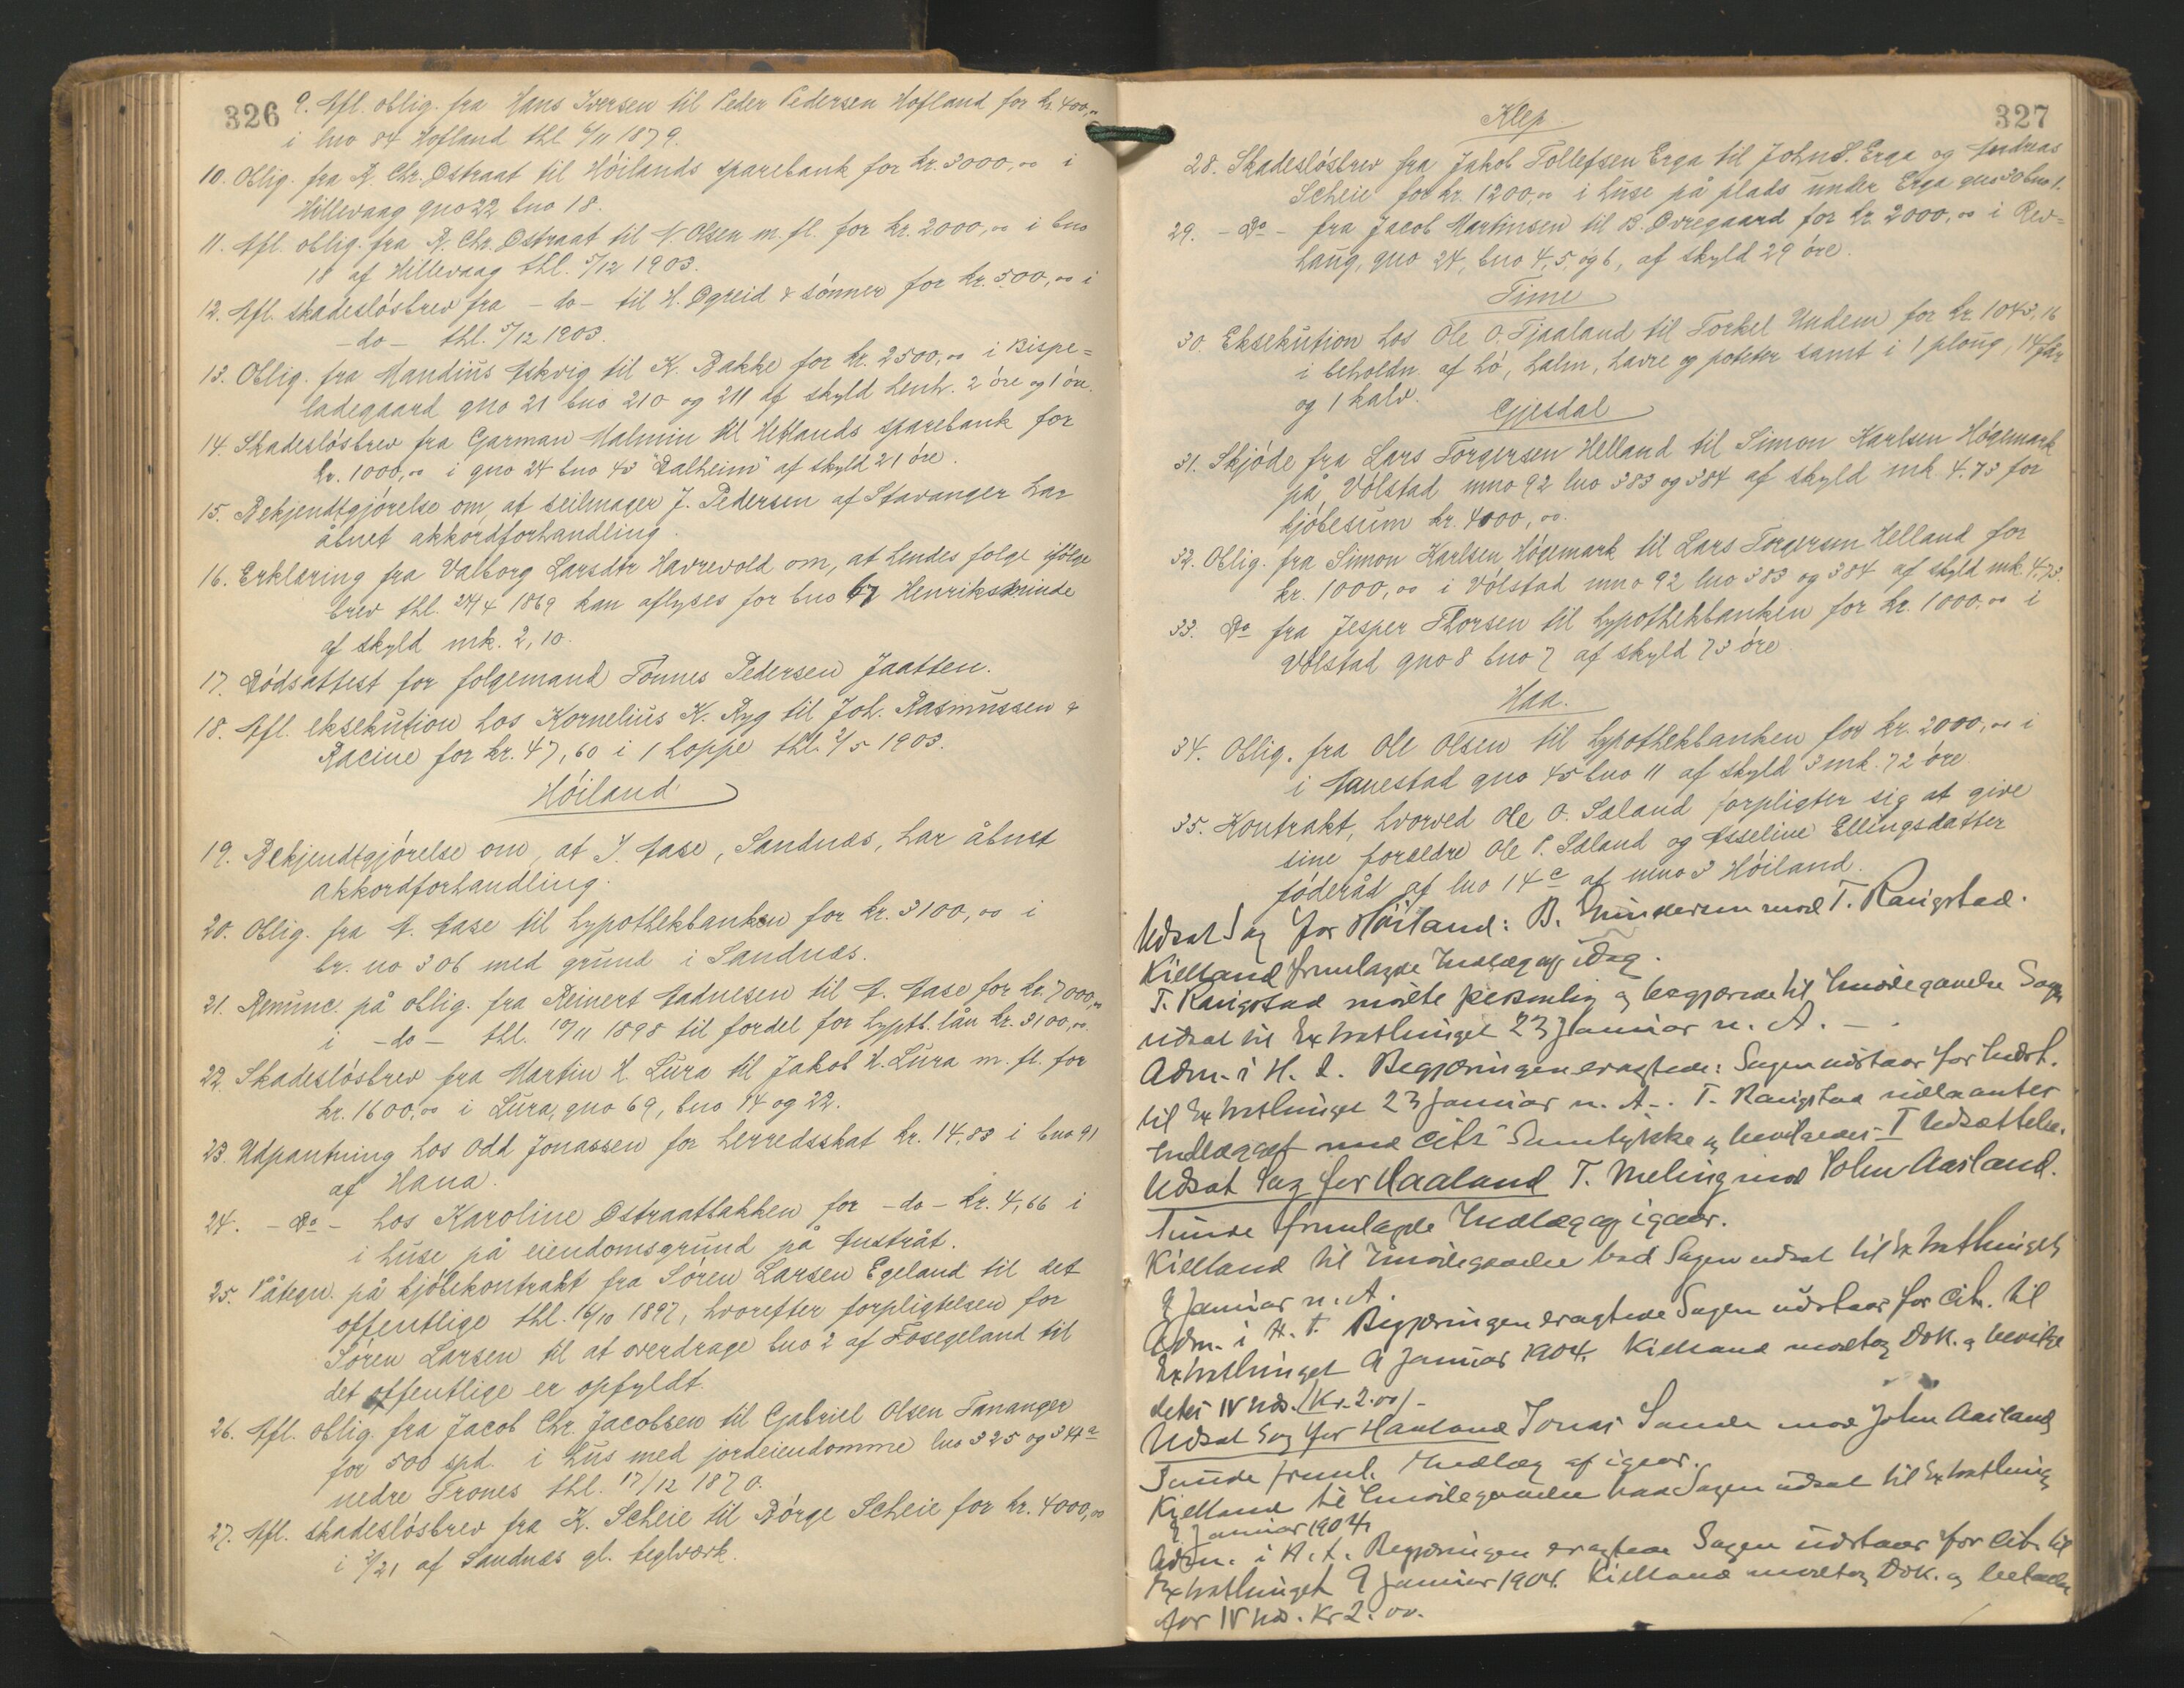 326
9. Afl. oblig. fra Hans Iversen til Peder Pedersen Hofland for kr. 400,00
i lno 84 Hofland thl. 6/11 1879.
10. Oblig. fra R. Chr. Østraat til Höilands sparebank for kr. 3000,00 i
Hillevaag gno 22 bno 18.
11. Afl. oblig. fra R. Chr. Østraat til N. Olsen m. fl. for kr. 2000,00 i bno
18 af Hillevaag thl. 5/12 1903.
12. Afl. skadeslösbrev fra - do - til H. Ögreid & sönner for kr. 500,00 i
- do - thl. 5/12 1903.
13. Oblig. fra Mandius Askvig til K. Bakke for kr. 2500,00 i Bispe=
ladegaard gno 21 bno 210 og 211 af skyld henh. 2 öre og 1 öre.
14. Skadeslösbrev fra Garman Malmin til Hetlands sparebank for
kr. 1000,00 i gno 24 bno 43 "Dalheim" af skyld 21 öre.
15. Bekjendtgjörelse om, at seilmager J. Pedersen af Stavanger har
åbnet akkordforhandling.
16. Erklæring fra Valborg Larsdtr Havrevold om, at hendes folge ifölge
brev thl. 24/4 1869 kan aflyses for bno 67 Henriksminde
af skyld mk. 2,10.
17. Dödsattest for folgemand Tönnes Pedersen Jaatten.
18. Afl. eksekution hos Kornelius K. Ryg til Joh. Rasmussen &
Racine for kr. 47,60 i 1 hoppe thl. 2/5 1903.
Höiland
19. Bekjendtgjörelse om, at I. Aase, Sandnæs, har åbnet
akkordforhandling.
20. Oblig. fra A. Aase til hypothekbanken for kr. 3100,00 i
br. no 306 med grund i Sandnæs.
21. Renunc. på oblig. fra Reinert Aadnesen til A. Aase for kr. 7000,00
i - do - thl. 10/11 1898 til fordel for hypth. lån kr. 3100,00.
22. Skadeslösbrev fra Martin H. Lura til Jakob H. Lura m. fl. for
kr. 1600,00 i Lura, gno 69, bno 14 og 22.
23. Udpantning hos Odd Jonassen for herredsskat kr. 14,83 i bno 91
af Hana.
24. - Do - hos Karoline Østraatbakken for - do - kr. 4,66 i
i huse på eiendomsgrund på Austråt.
25. Påtegn. på kjöbekontrakt fra Sören Larsen Egeland til det
offentlige thl. 16/10 1897, hvorefter forpligtelsen for
Sören Larsen til at overdrage bno 2 af Fosegeland til
det offentlige er opfyldt.
26. Afl. oblig. fra Jacob Chr. Jacobsen til Gabriel Olsen Tananger
for 500 spd. i hus med jordeiendomme lno 325 og 344a
nedre Trones thl. 17/12 1870.
27. Afl. skadeslösbrev fra K. Scheie til Börge Scheie for kr. 4000,00
i 2/21 af Sandnæs gl. teglværk.
327
Klep
28. Skadeslösbrev fra Jakob Tollefsen Erga til John S. Erga og Andreas
Scheie for kr. 1200,00 i huse på plads under Erga gno 30 bno 1.
29. - Do - fra Jacob Martinsen til B. Övregaard for kr. 2000,00 i Rev=
haug, gno 24, bno 4, 5, og 6, af skyld 29 öre.
Time
30. Eksekution hos Ole O. Tjaaland til Torkel Undem for kr. 1043,16
i beholdn. af hö, halm, havre og poteter samt i 1 ploug, 14 får
og 1 kalv.
Gjesdal
31. Skjöde fra Lars Torgersen Helland til Simon Karlsen Högemark
på Volstad mno 92 lno 383 og 384 af skyld mk. 4.73 for
kjöbesum kr. 4000,00.
32. Oblig. fra Simon Karlsen Högemark til Lars Torgersen Helland for
kr. 1000,00 i Volstad mno 92 lno 383 og 384 af skyld mk. 4.73.
33. Do fra Jesper Thorsen til hypothekbanken for kr. 1000,00 i
Volstad gno 8 bno 7 af skyld 73 öre.
Haa.
34. Oblig. fra Ole Olsen til hypothekbanken for kr. 2000,00 i
i Aanestad gno 45 bno 11 af skyld 3 mk. 72 öre.
35. Kontrakt, hvorved Ole O. Sæland forpligter sig at give
sine forældre Ole P. Sæland og Asseline Ellingsdatter
föderåd af lno 14c af mno 3 Höiland.
Udsat Sag for Höiland: B. Gundersen mod T. Raugstad.
Kielland fremlagde Indlæg af idag.
T. Raugstad mödte personlig og begjærede til Imödegaaelse Sagen
udsat til Extrathinget 23 Januar n. A. -
Adm. i H. t. Begjæringen eragtede: Sagen udstaar for Indst.
til Extrathinget 23 Januar n. A. - T. Raugstad udlaanter
Indlægget med Citr. Samtykke og bevilgedes I Udsættelse.
Udsat Sag for Haaland T. Meling mod John Aasland.
Tunde fremlagde Indlæg af igaar.
Kielland til Imödegaaelse bad Sagen udsat til Extrathinget
9 Januar n. A.
Adm. i H. t. Begjæringen eragtede Sagen udstaar for Cit. til
Extrathinget 9 Januar 1904. Kielland modtog Dok. og bevilge
detes IV Uds. (Kr. 2.00) -
Udsat Sag for Haaland Jonas Sande mod John Aasland
Tunde freml. Indlæg af igaar.
Kielland til Imödegaaelse bad Sagen udsat til Extrathing
9 Januar 1904
Adm. i H. t. Begjæringen eragtede Sagen udstaar for Cit. til
Extrathinget 9 Januar 1904. Kielland modtog Dok. og betalte
for IV Uds. Kr 2.00.